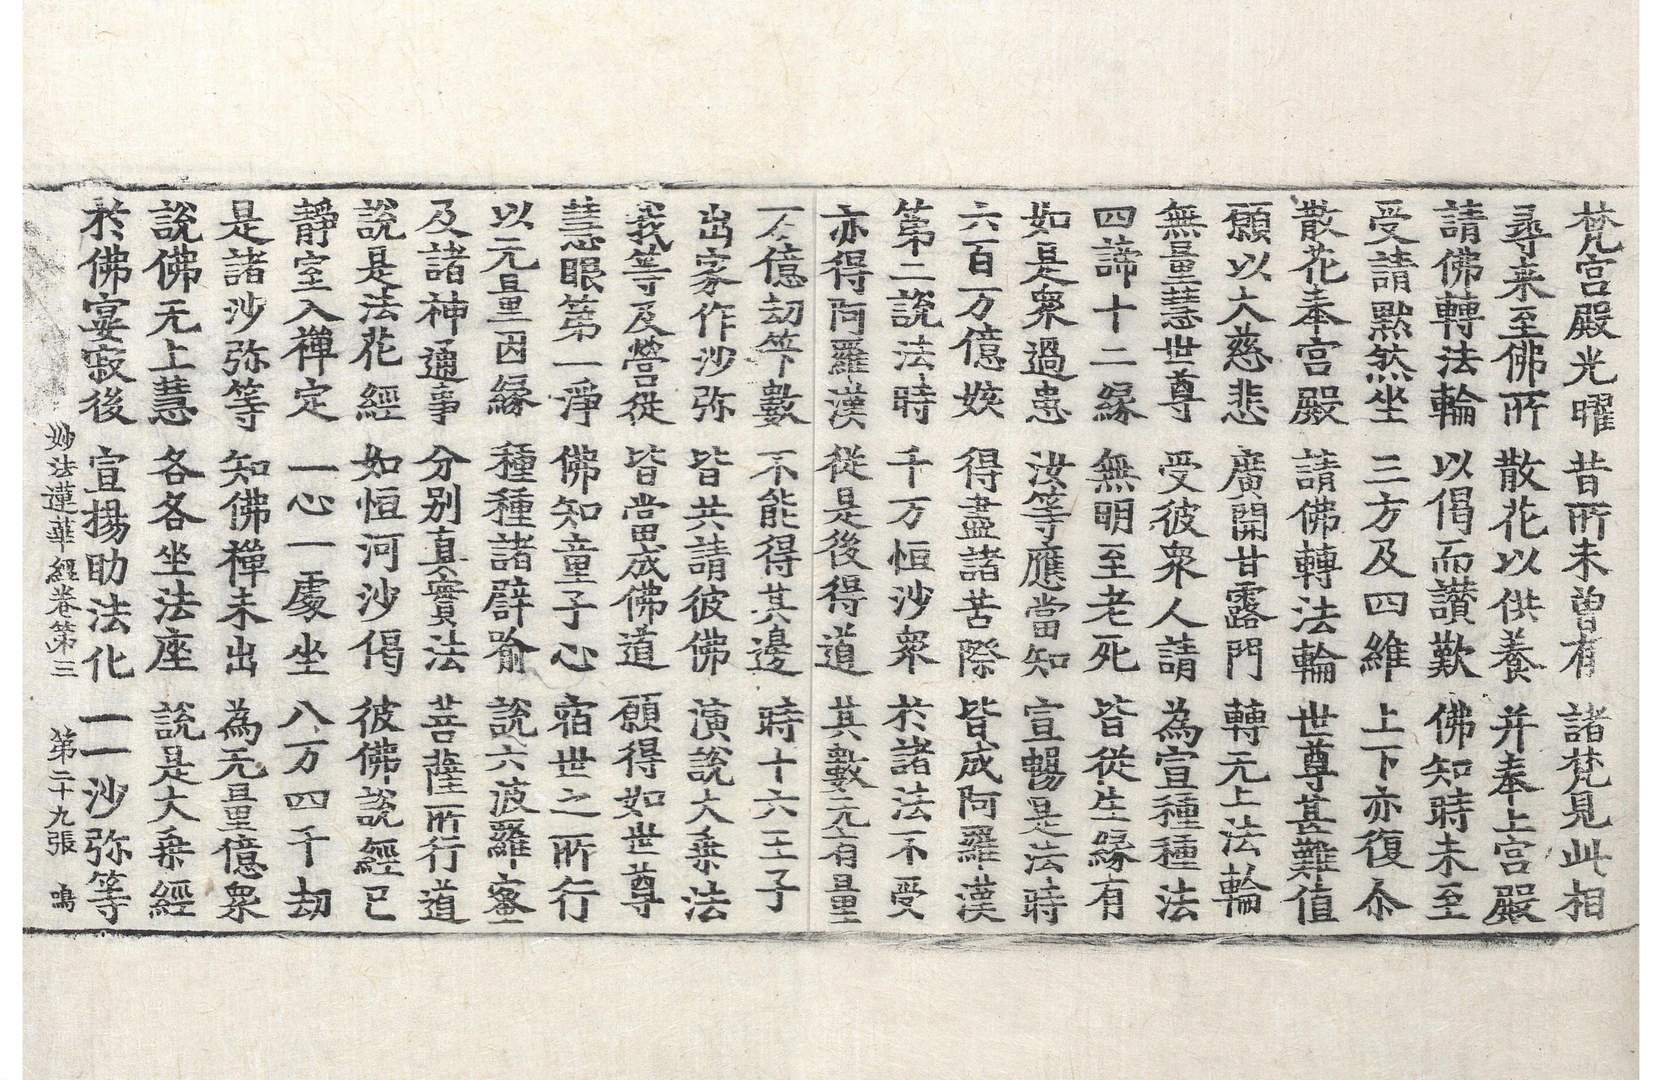 梵宫殿光曜 昔所未曽有 諸梵見此相
尋来至佛所 散花以供養 并奉上宫殿
請佛轉法輪 以偈而讃歎 佛知時未至
受請黙然坐 三方及四維 上下亦復尒
散花奉宫殿 請佛轉法輪 世尊甚難值
願以大慈悲 廣開甘露門 轉无上法輪
無量慧世尊 受彼衆人請 為宣種種法
四諦十二縁 無明至老死 皆從生縁有
如是衆過患 汝等應當知 宣暢是法時
六百万億姟 得盡諸苦際 皆成阿羅漢
第二說法時 千万恒沙衆 於諸法不受
亦得阿羅漢 從是後得道 其數无有量
万億劫筭數 不能得其邊 時十六王子
出家作沙弥 皆共請彼佛 演說大乗法
我等及營從 皆當成佛道 願得如世尊
慧眼第一淨 佛知童子心 宿世之所行
以无量因縁 種種諸譬喻 說六波羅蜜
及諸神通事 分别真實法 菩薩所行道
說是法花經 如恒河沙偈 彼佛說經已
靜室入禪定 一心一處坐 八万四千劫
是諸沙弥等 知佛禪未出 為无量億衆
說佛无上慧 各各坐法座 說是大乗經
於佛宴寂後 宣揚助法化 一一沙弥等
妙法蓮華經卷第三 第二十九張 鳴